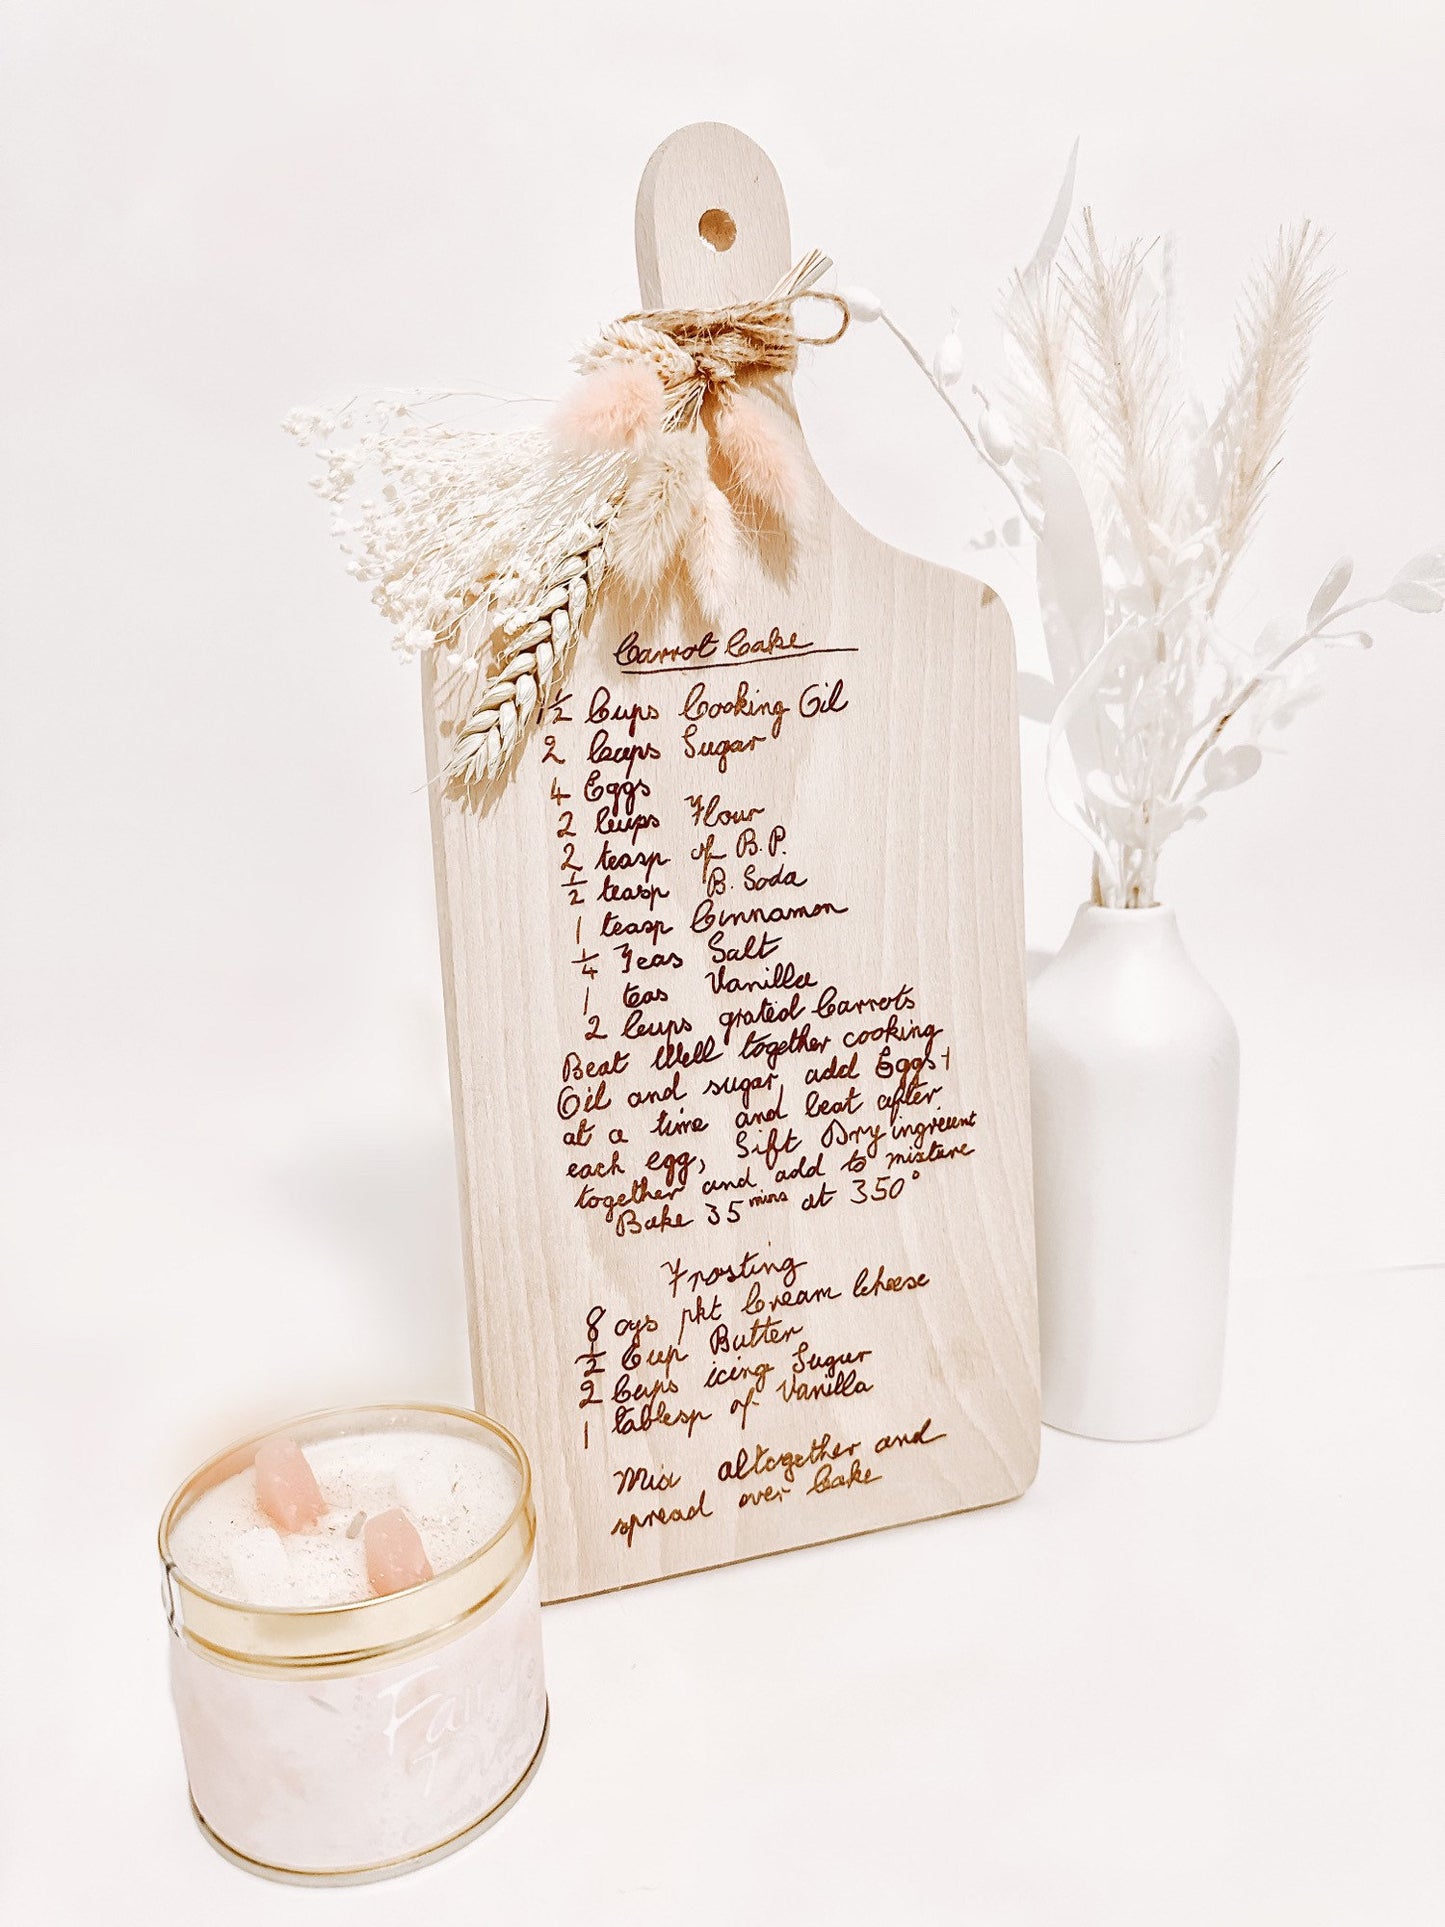 Carrot Cake
1½ Cups Cooking Oil
2 Cups Sugar
4 Eggs
2 Cups Flour
2 teasp of B.P.
½ teasp B. Soda
1 teasp Cinnamon
¼ Teas Salt
1 teas Vanilla
2 Cups grated Carrots
Beat Well together cooking
Oil and sugar, add Eggs 1
at a time and beat after
each egg, Sift Dry ingrient
together and add to mixture
Bake 35 mins at 350°
Frosting
8 ozs pkt Cream Cheese
½ Cup Butter
2 Cups icing Sugar
1 tablesp of Vanilla
Mix altogether and
spread over Cake
Fairy